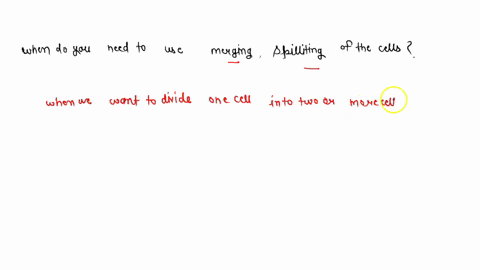 when do you need to use merging, spilliting of the cells?
when we want to divide one cell into two or more cell